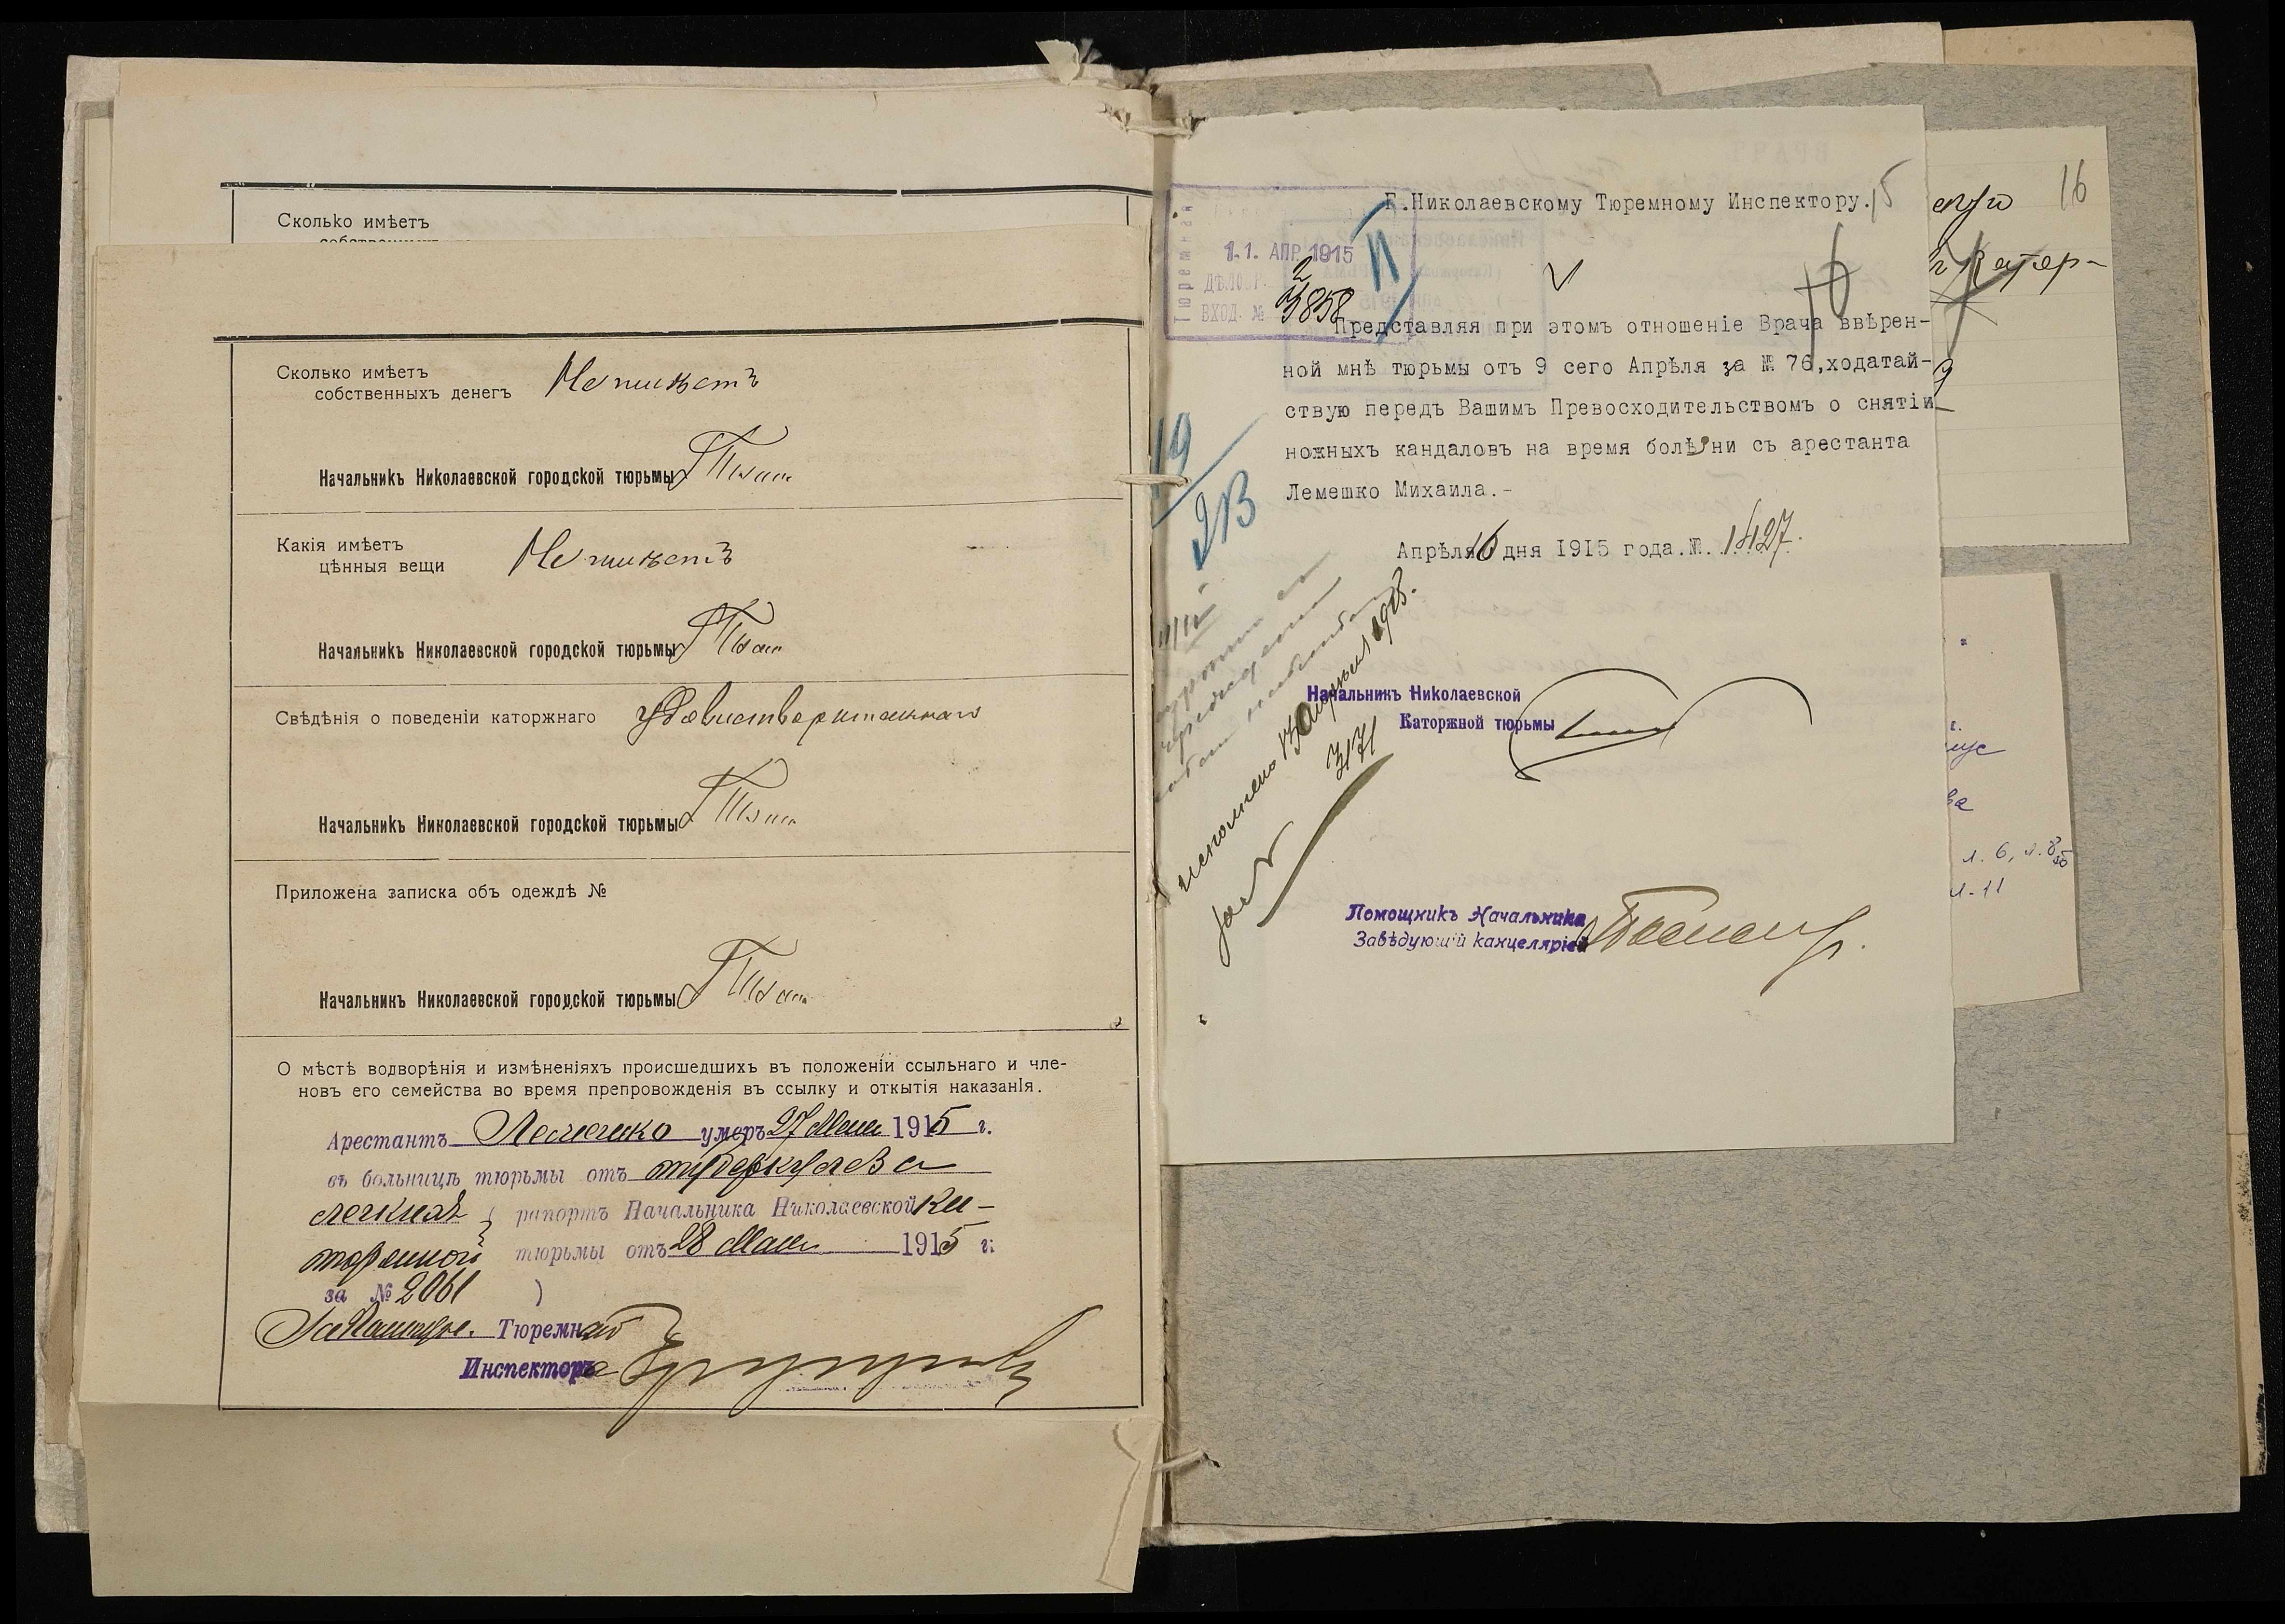 Сколько имѣетъ
Сколько имѣетъ
собственныхъ денегъ Не имѣетъ
Начальникъ Николаевской городской тюрьмы
Какія имѣетъ
цѣнныя вещи Не имѣетъ
Начальникъ Николаевской городской тюрьмы
Свѣдѣнія о поведеніи каторжнаго удовлетворительнаго
Начальникъ Николаевской городской тюрьмы
Приложена записка объ одеждѣ №
Начальникъ Николаевской городской тюрьмы
О мѣстѣ водворѣнія и измѣненіяхъ происшедшихъ въ положеніи ссыльнаго и чле-
новъ его семейства во время препровожденія въ ссылку и откытія наказанІя.
Арестантъ Лемешко умеръ 27 Мая 1915 г.
въ больницѣ тюрьмы отъ туберкулеза
легкихъ ( рапортъ Начальника Николаевской Ка-
торжной тюрьмы отъ 28 Мая 1915 г.
за № 2061 )
Тюремнаго
Инспектора
Г.Николаевскому Тюремному Инспектору. 15
11. АПР 1915
ВХОД. № 3858
Представляя при этомъ отношеніе Врача ввѣрен-
ной мнѣ тюрьмы отъ 9 сего Апрѣля за № 76,ходатай-
ствую передъ Вашимъ Превосходительствомъ о снятіи
ножныхъ кандаловъ на время болѣзни съ арестанта
Лемешко Михаила.-
Апрѣля 10 дня 1915 года.№. 1427.
19
Исполнено 13 Апрѣля 1915.
3171
Начальникъ Николаевской
Каторжной тюрьмы
Помощникъ Начальника
Завѣдующій канцеляріей
16
л. 6, л. 8об
л. 11